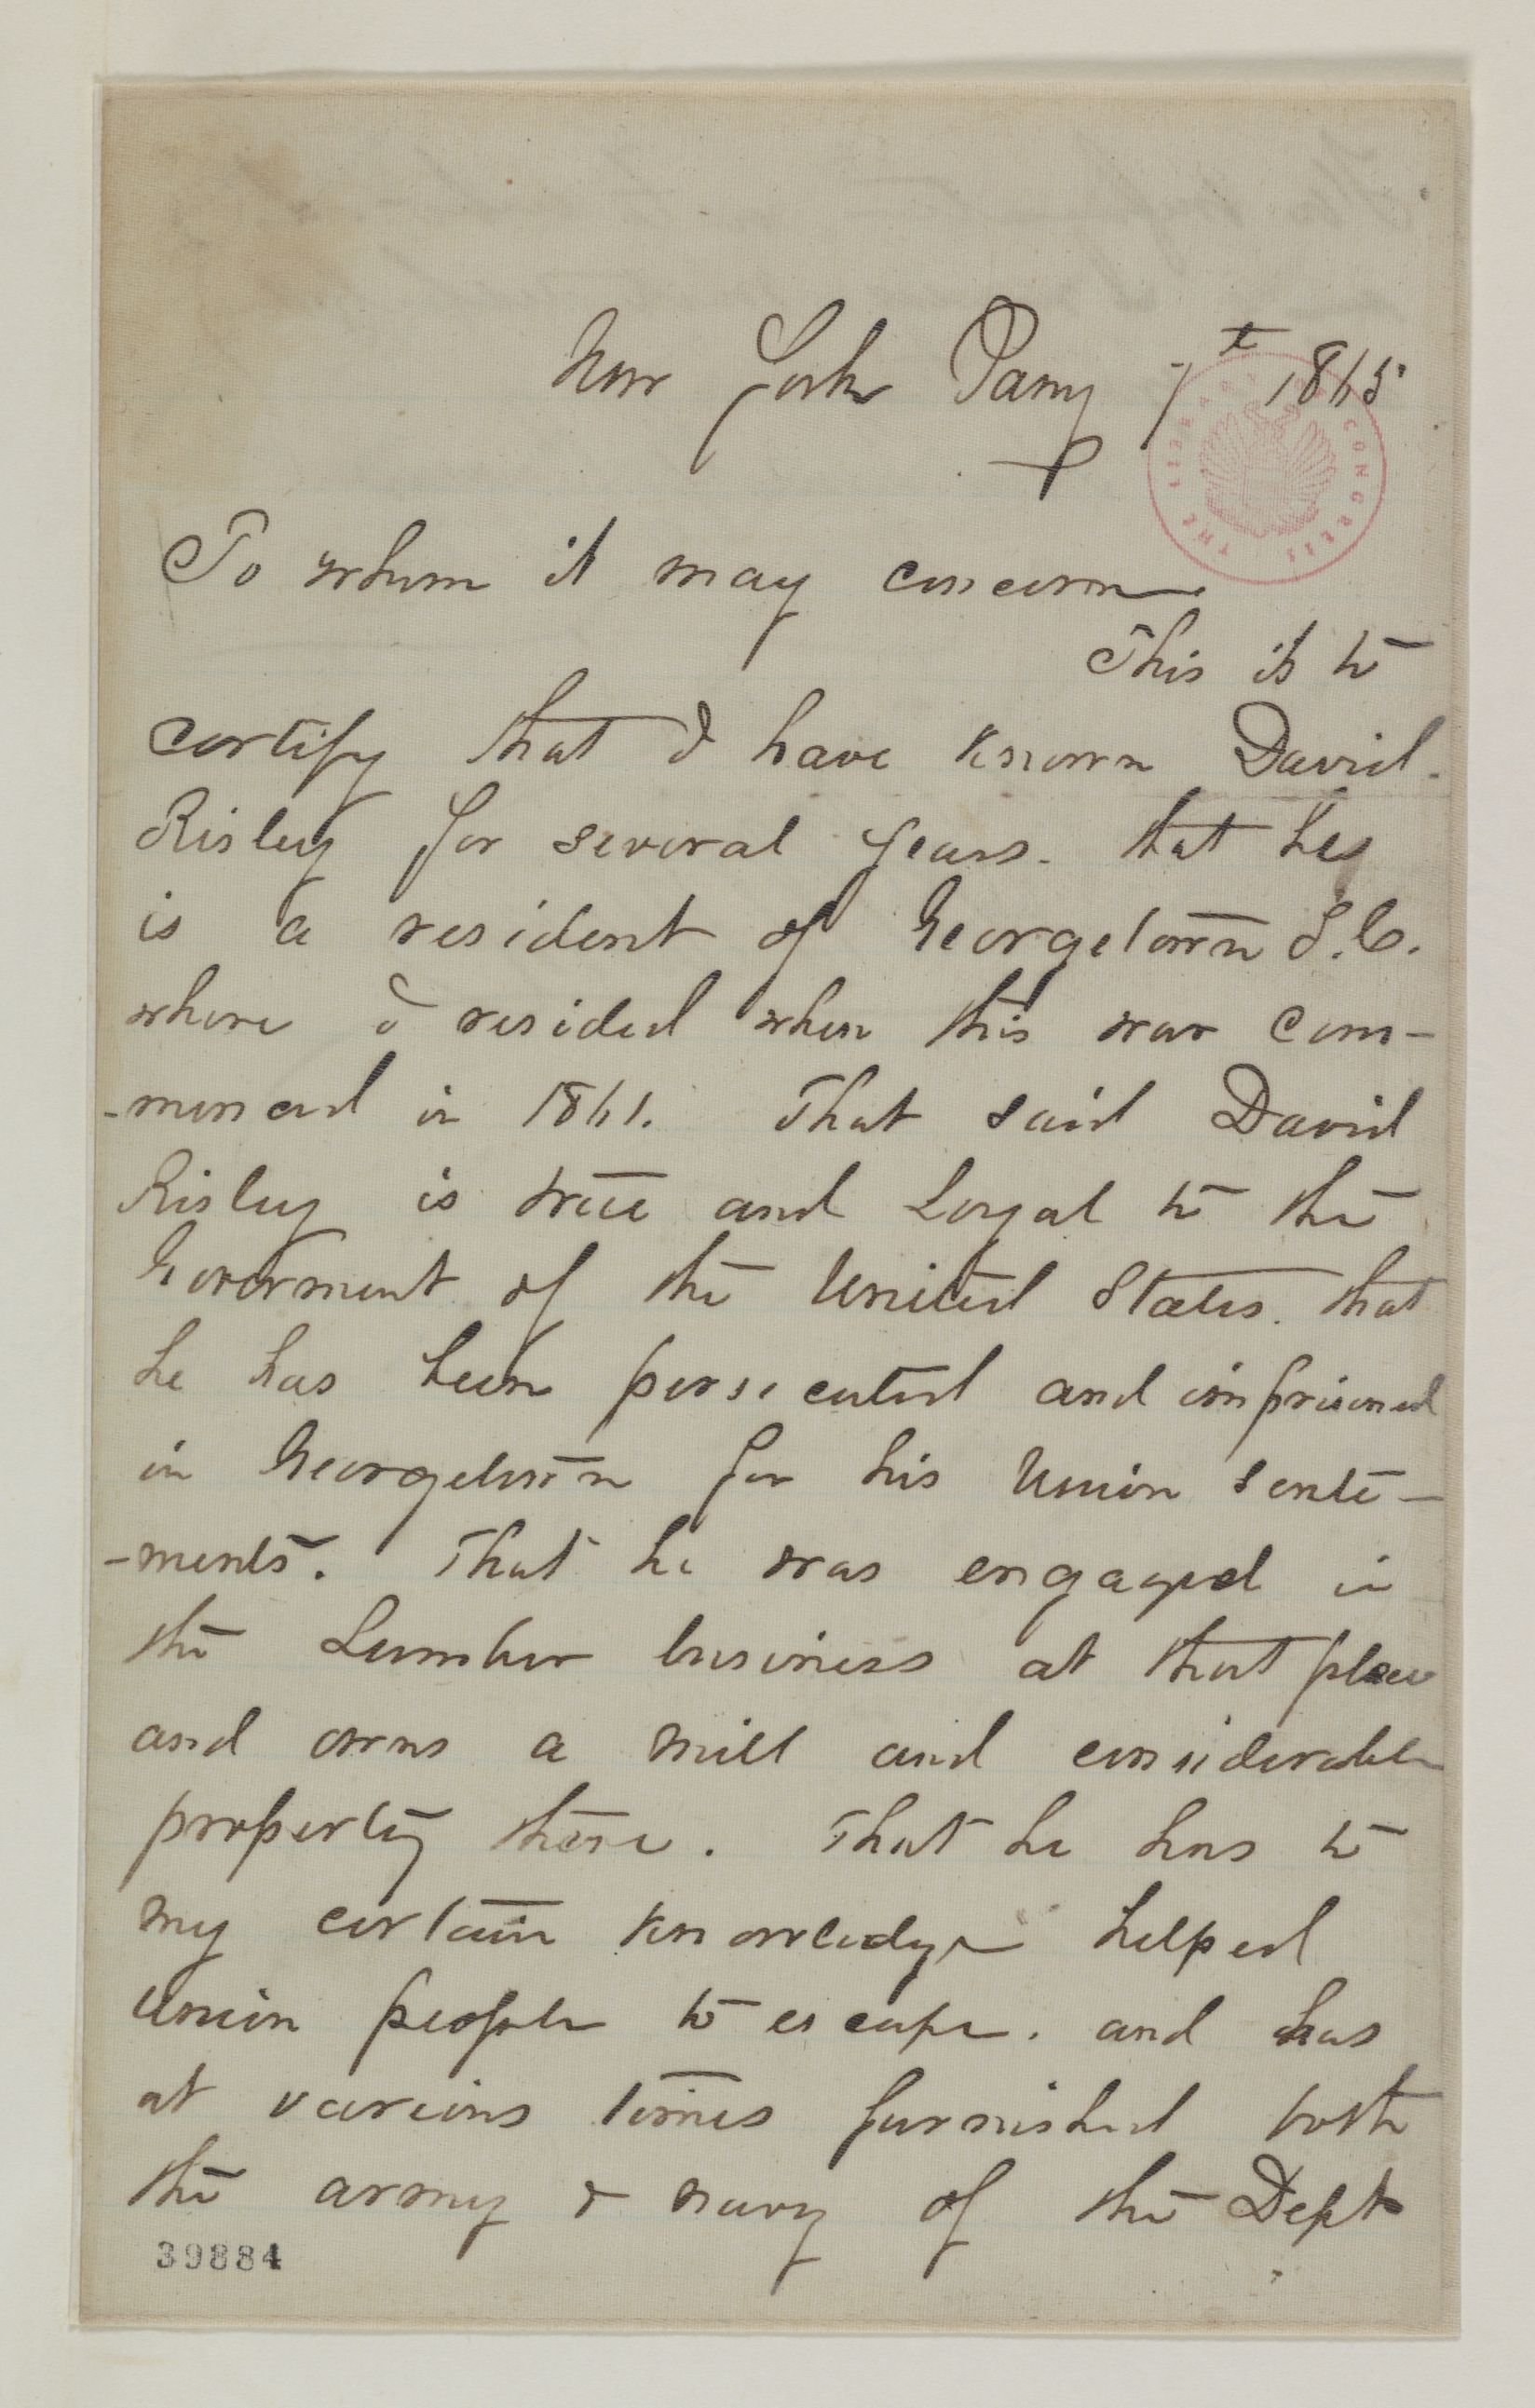 New York Jany 7t 1865
THE LIBRARY OF CONGRESS
To whom it may concern.
This is to
certify that I have known David.
Risley for several years. that he
is a resident of Georgetown S.C.
where I resided when this war com-
-menced in 1861. That said David
Risley is true and Loyal to the
Goverment of the United States. that
he has been persecuted and imprisoned
in Georgetown for his Union senti-
-ments. That he was engaged in
the Lumber business at that place
and owns a mill and considerable
property there. That he has to
my certain knowledge helped
Union people to escape. and has
at various times furnished both
the army & navy of the Dept
39884